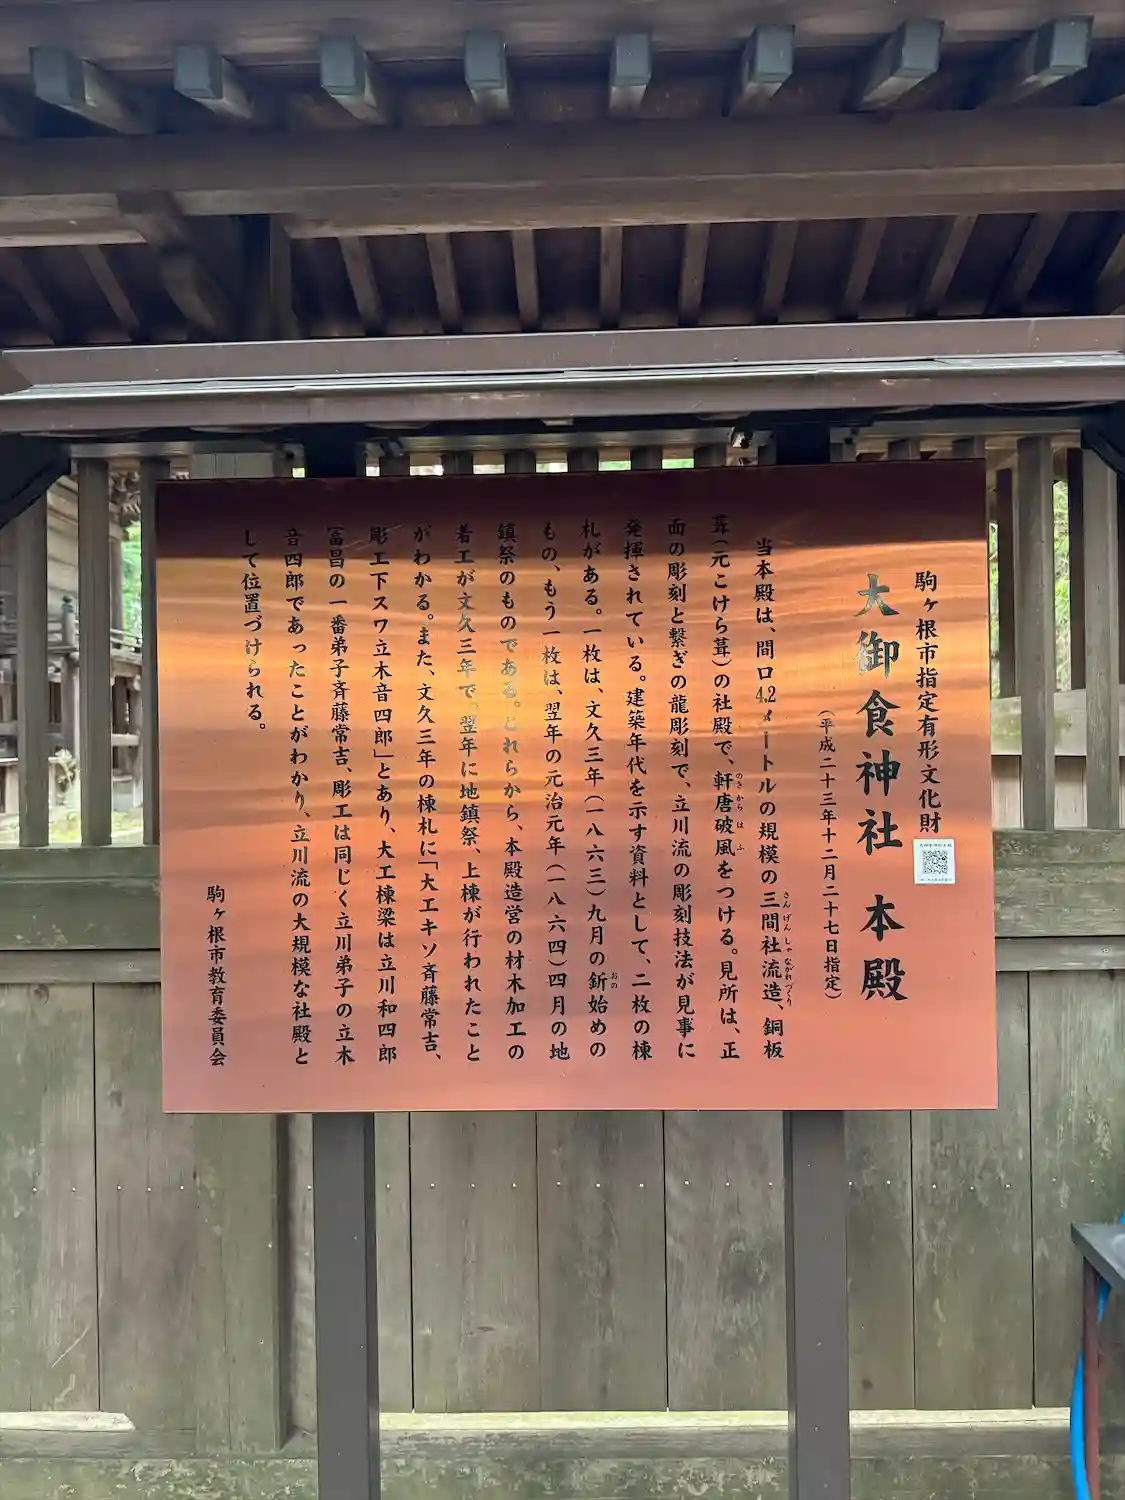 駒ヶ根市指定有形文化財
大御食神社 本殿
(平成二十三年十二月二十七日指定)
当本殿は、間口4.2メートルの規模の三間社流造、銅板
さんげんしゃながれづくり
葺(元こけら葺)の社殿で、軒唐破風をつける。見所は、正
のきからはふ
面の彫刻と繋ぎの龍彫刻で、立川流の彫刻技法が見事に
発揮されている。建築年代を示す資料として、二枚の棟
札がある。一枚は、文久三年(一八六三)九月の釿始めの
おの
もの、もう一枚は、翌年の元治元年(一八六四)四月の地
鎮祭のものである。これらから、本殿造営の材木加工の
着工が文久三年で、翌年に地鎮祭、上棟が行われたこと
がわかる。また、文久三年の棟札に「大工キソ斉藤常吉、
彫工下スワ立木音四郎」とあり、大工棟梁は立川和四郎
冨昌の一番弟子斉藤常吉、彫工は同じく立川弟子の立木
音四郎であったことがわかり、立川流の大規模な社殿と
して位置づけられる。
駒ヶ根市教育委員会